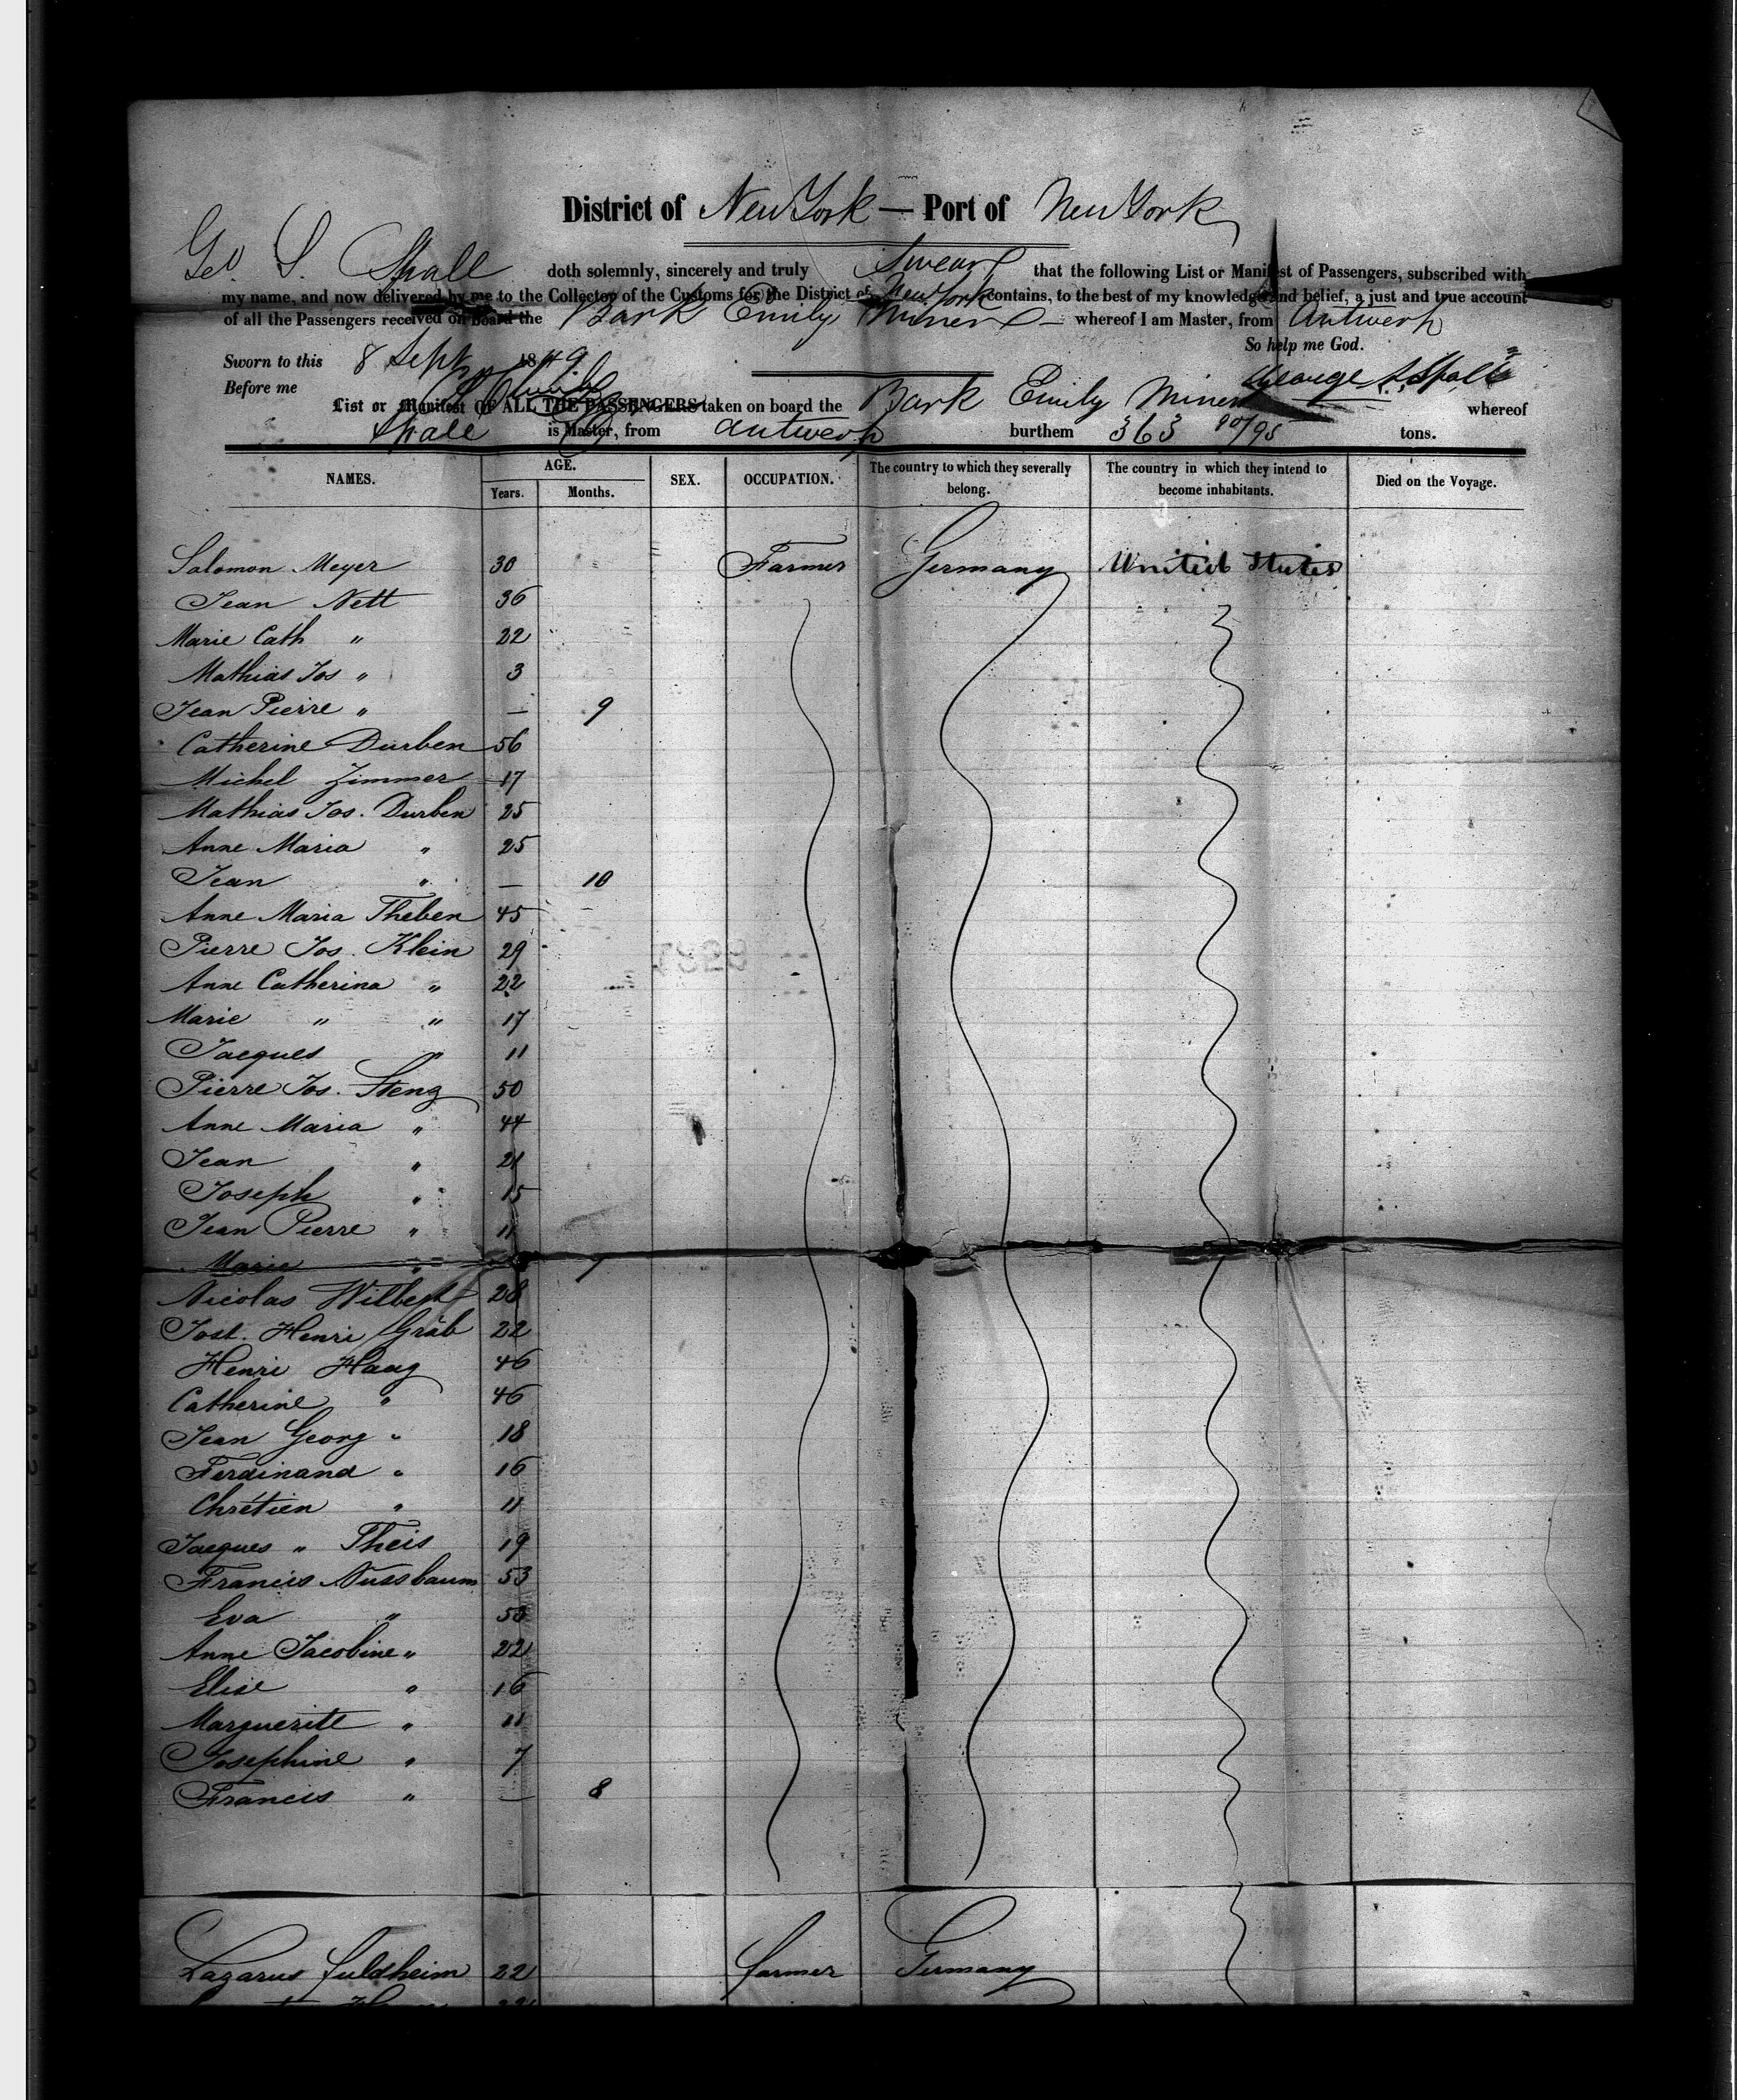 District of New York — Port of New York
Geo S. Spall doth solemnly, sincerely and truly Swear that the following List or Manifest of Passengers, subscribed with
my name, and now delivered by me to the Collector of the Customs for the District of New York contains, to the best of my knowledge and belief, a just and true account
of all the Passengers received on board the Bark Emily Miner — whereof I am Master, from Antwerp
So help me God.
Sworn to this 8 Sept 1849
Before me
George S. Spall
List or Manifest OF ALL THE PASSENGERS taken on board the Bark Emily Miner whereof
Spall is Master, from Antwerp burthem 363 90/95 tons.
NAMES. AGE. SEX. OCCUPATION. The country to which they severally belong. The country in which they intend to become inhabitants. Died on the Voyage.
Years. Months.
Salomon Meyer 30 Farmer Germany United States
Jean Nett 36
Marie Cath " 22
Mathias Jos " 3
Jean Pierre " — 9
Catherine Durben 56
Michel Zimmer 17
Mathias Jos. Durben 25
Anne Maria " 25
Jean " — 10
Anne Maria Theben 45
Pierre Jos. Klein 29
Anne Catherina " 22
Marie " " 17
Jacques " 11
Pierre Jos. Steng 50
Anne Maria " 44
Jean " 21
Joseph " 15
Jean Pierre " 11
Marie "
Nicolas 28
Jost. Henri Gräb 22
Henri Haag 46
Catherine " 46
Jean Georg " 18
Ferdinand " 16
Chrétien " 11
Jacques " Theis 19
Francis Nussbaum 53
Eva " 50
Anne Jacobine " 22
Elise " 16
Marguerite " 11
Josephine " 7
Francis " — 8
Lazarus Fuldheim 22 farmer Germany